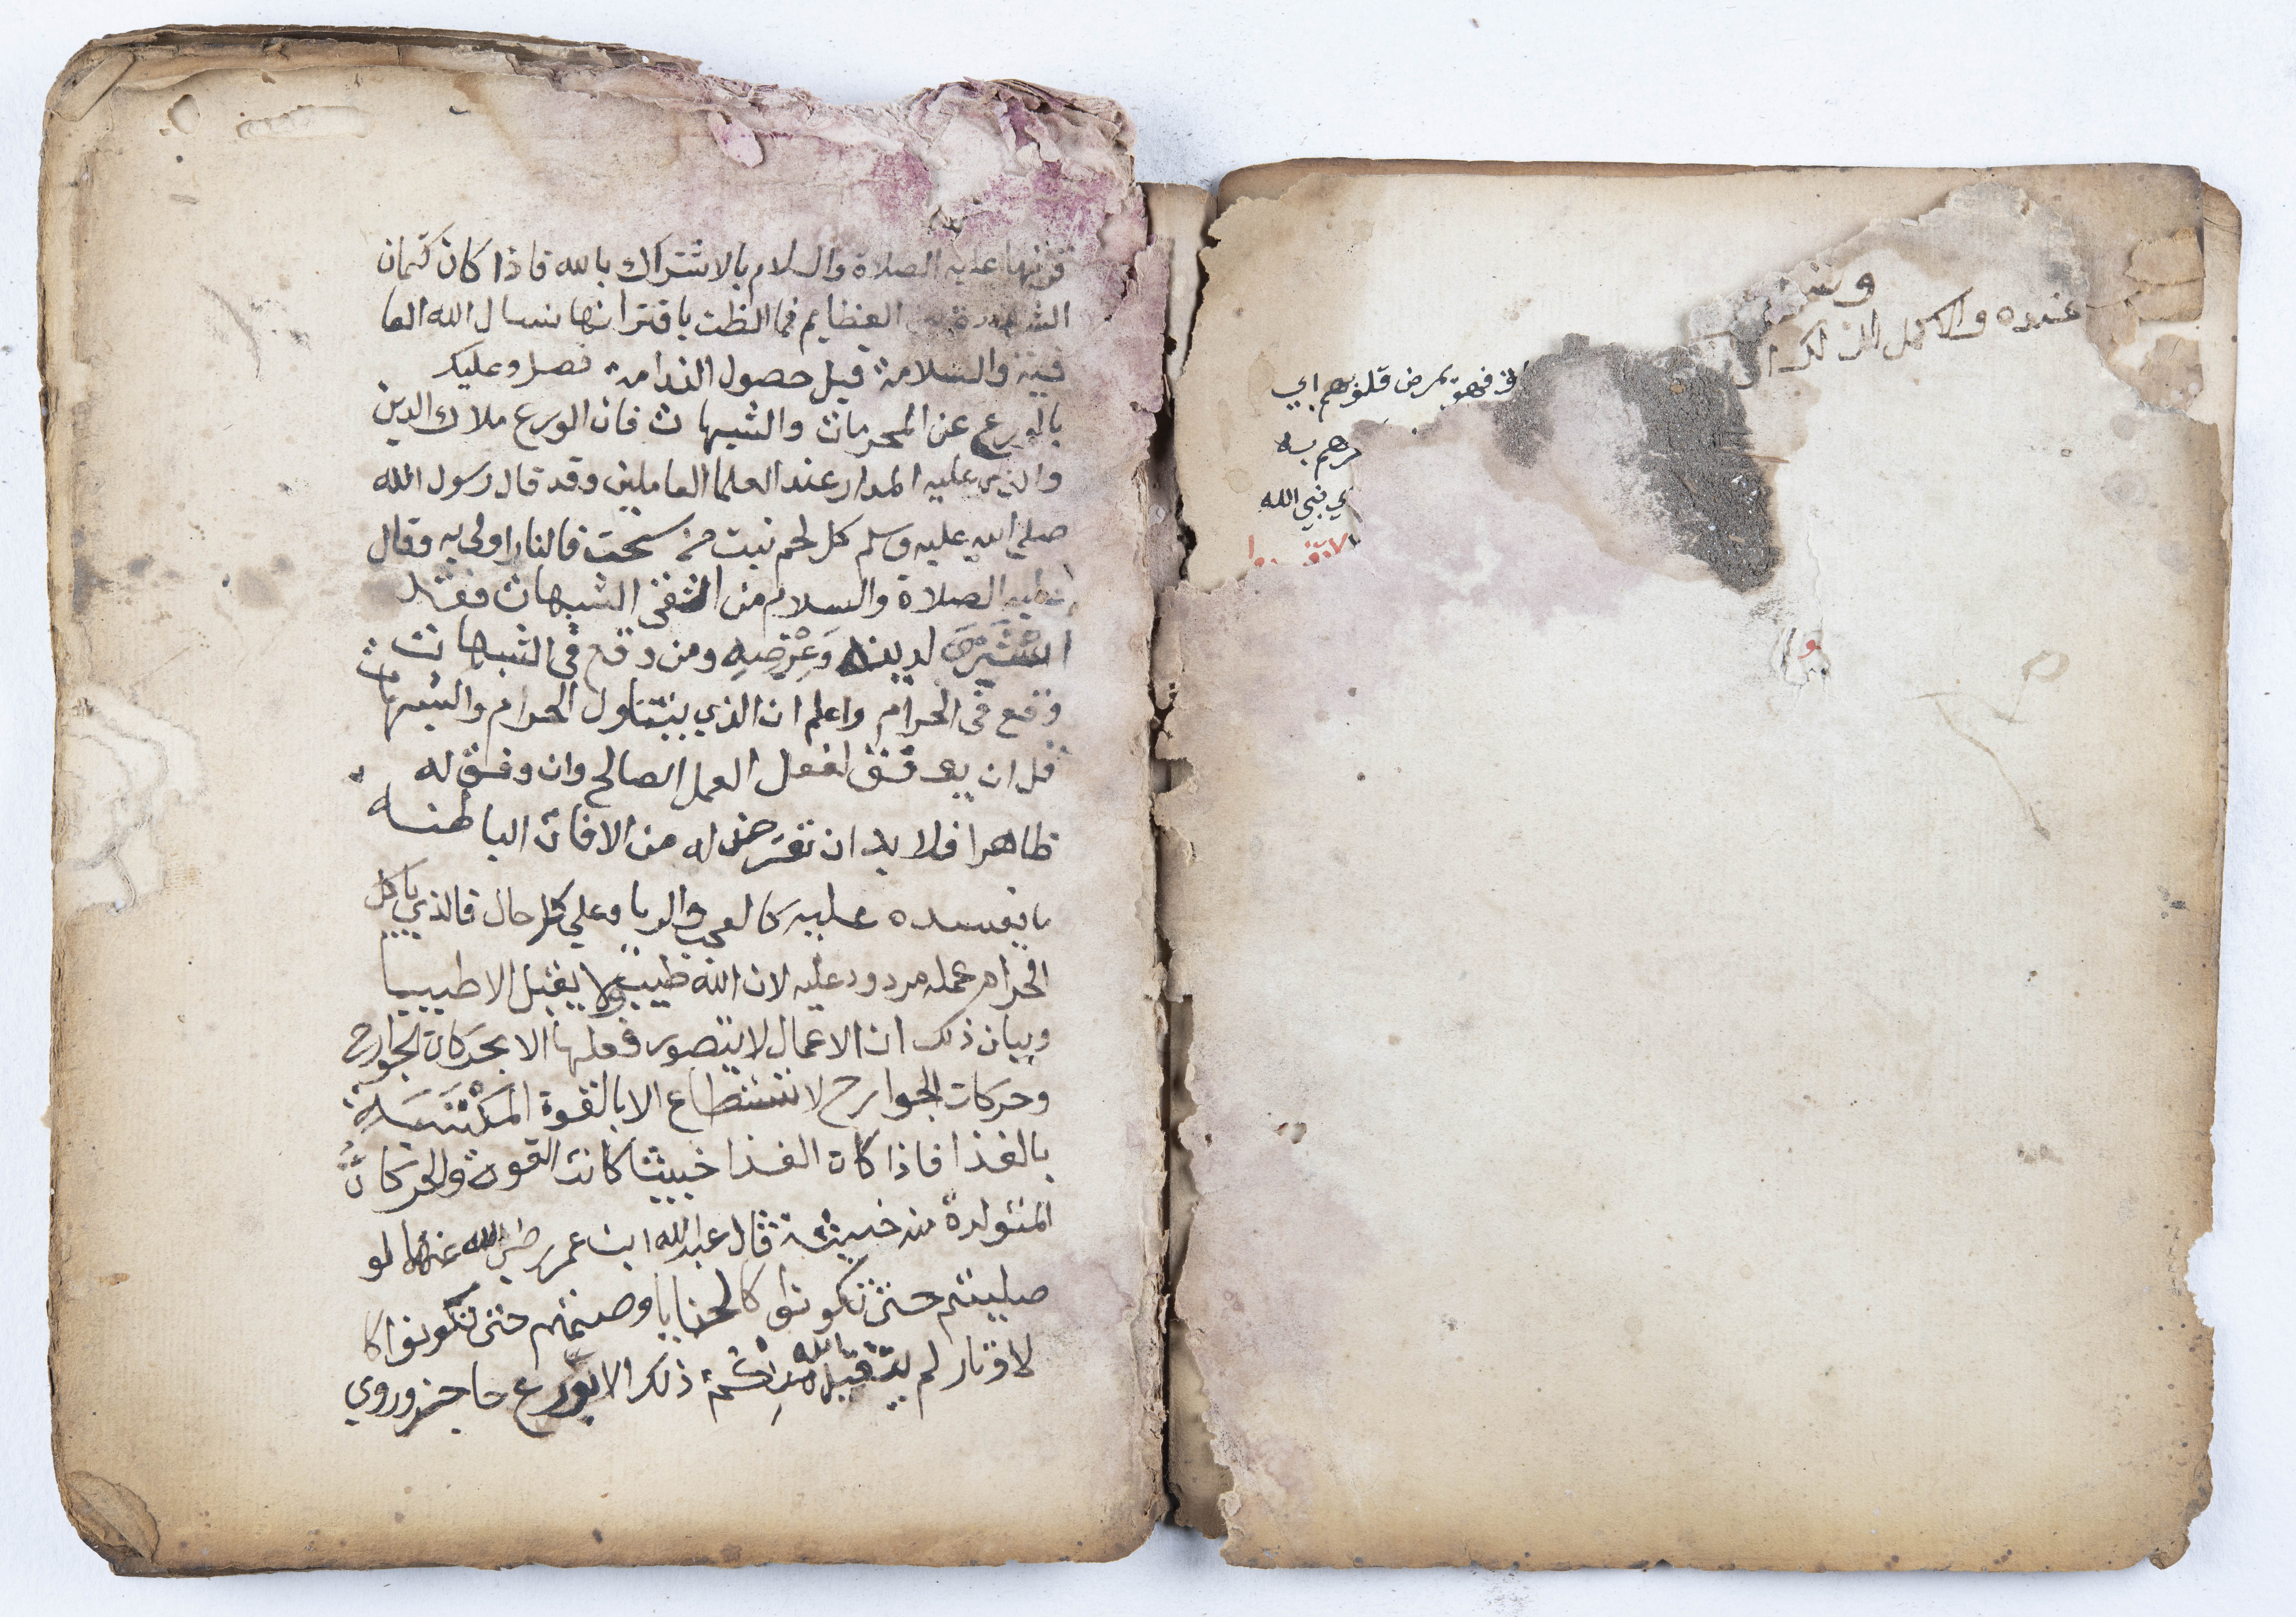 وشر
عنده والاكل
فهو بمرض قلوبهم اي
رهم به
ي نبي الله
لا تقربوا
قرنها عليه الصلاة والسلام بالاشتراك بالله فاذا كان كتمان
الشهادة من العظايم فما الظن باقترانها نسال الله العا
فية والسلامة قبل حصول الندامة فصل وعليك
بالورع عن المحرمات والشبهات فان الورع ملاك الدين
والذي عليه المدار عند العلما العاملين وقد قال رسول الله
صلي الله عليه وسلم كل لحم نبت من سحت فالنار اولي به وقال
عليه الصلاة والسلام من اتقى الشبهات فقد
استبرى لدينه وَعِرْضِهِ ومن وقع في الشبهات
وقع في الحرام واعلم ان الذي يتناول الحرام والشبهات
قل ان يوفق لفعل العمل الصالح وان وفق له
ظاهرا فلا بد ان تعترض له من الافات الباطنه
ما يفسده عليه كالعجب والريا وعلي كل حال فالذي ياكل
الحرام عمله مردود عليه لان الله طيب ولا يقبل الا طيبا
وبيان ذلك ان الاعمال لا يتصور فعلها الا بحركات الجوارح
وحركات الجوارح لا تستطاع الا بالقوة المكْتَسَبَة
بالغذا فاذا كان الغذا خبيثا كانت القوة والحركات
المتولدة منه خبيثة قال عبد الله ابن عمر رضي الله عنهما لو
صليتم حتى تكونوا كالحنايا وصمتم حتى تكونوا كا
لاوتار لم يتقبل الله منكم ذلك الا بورع حاجز وروي